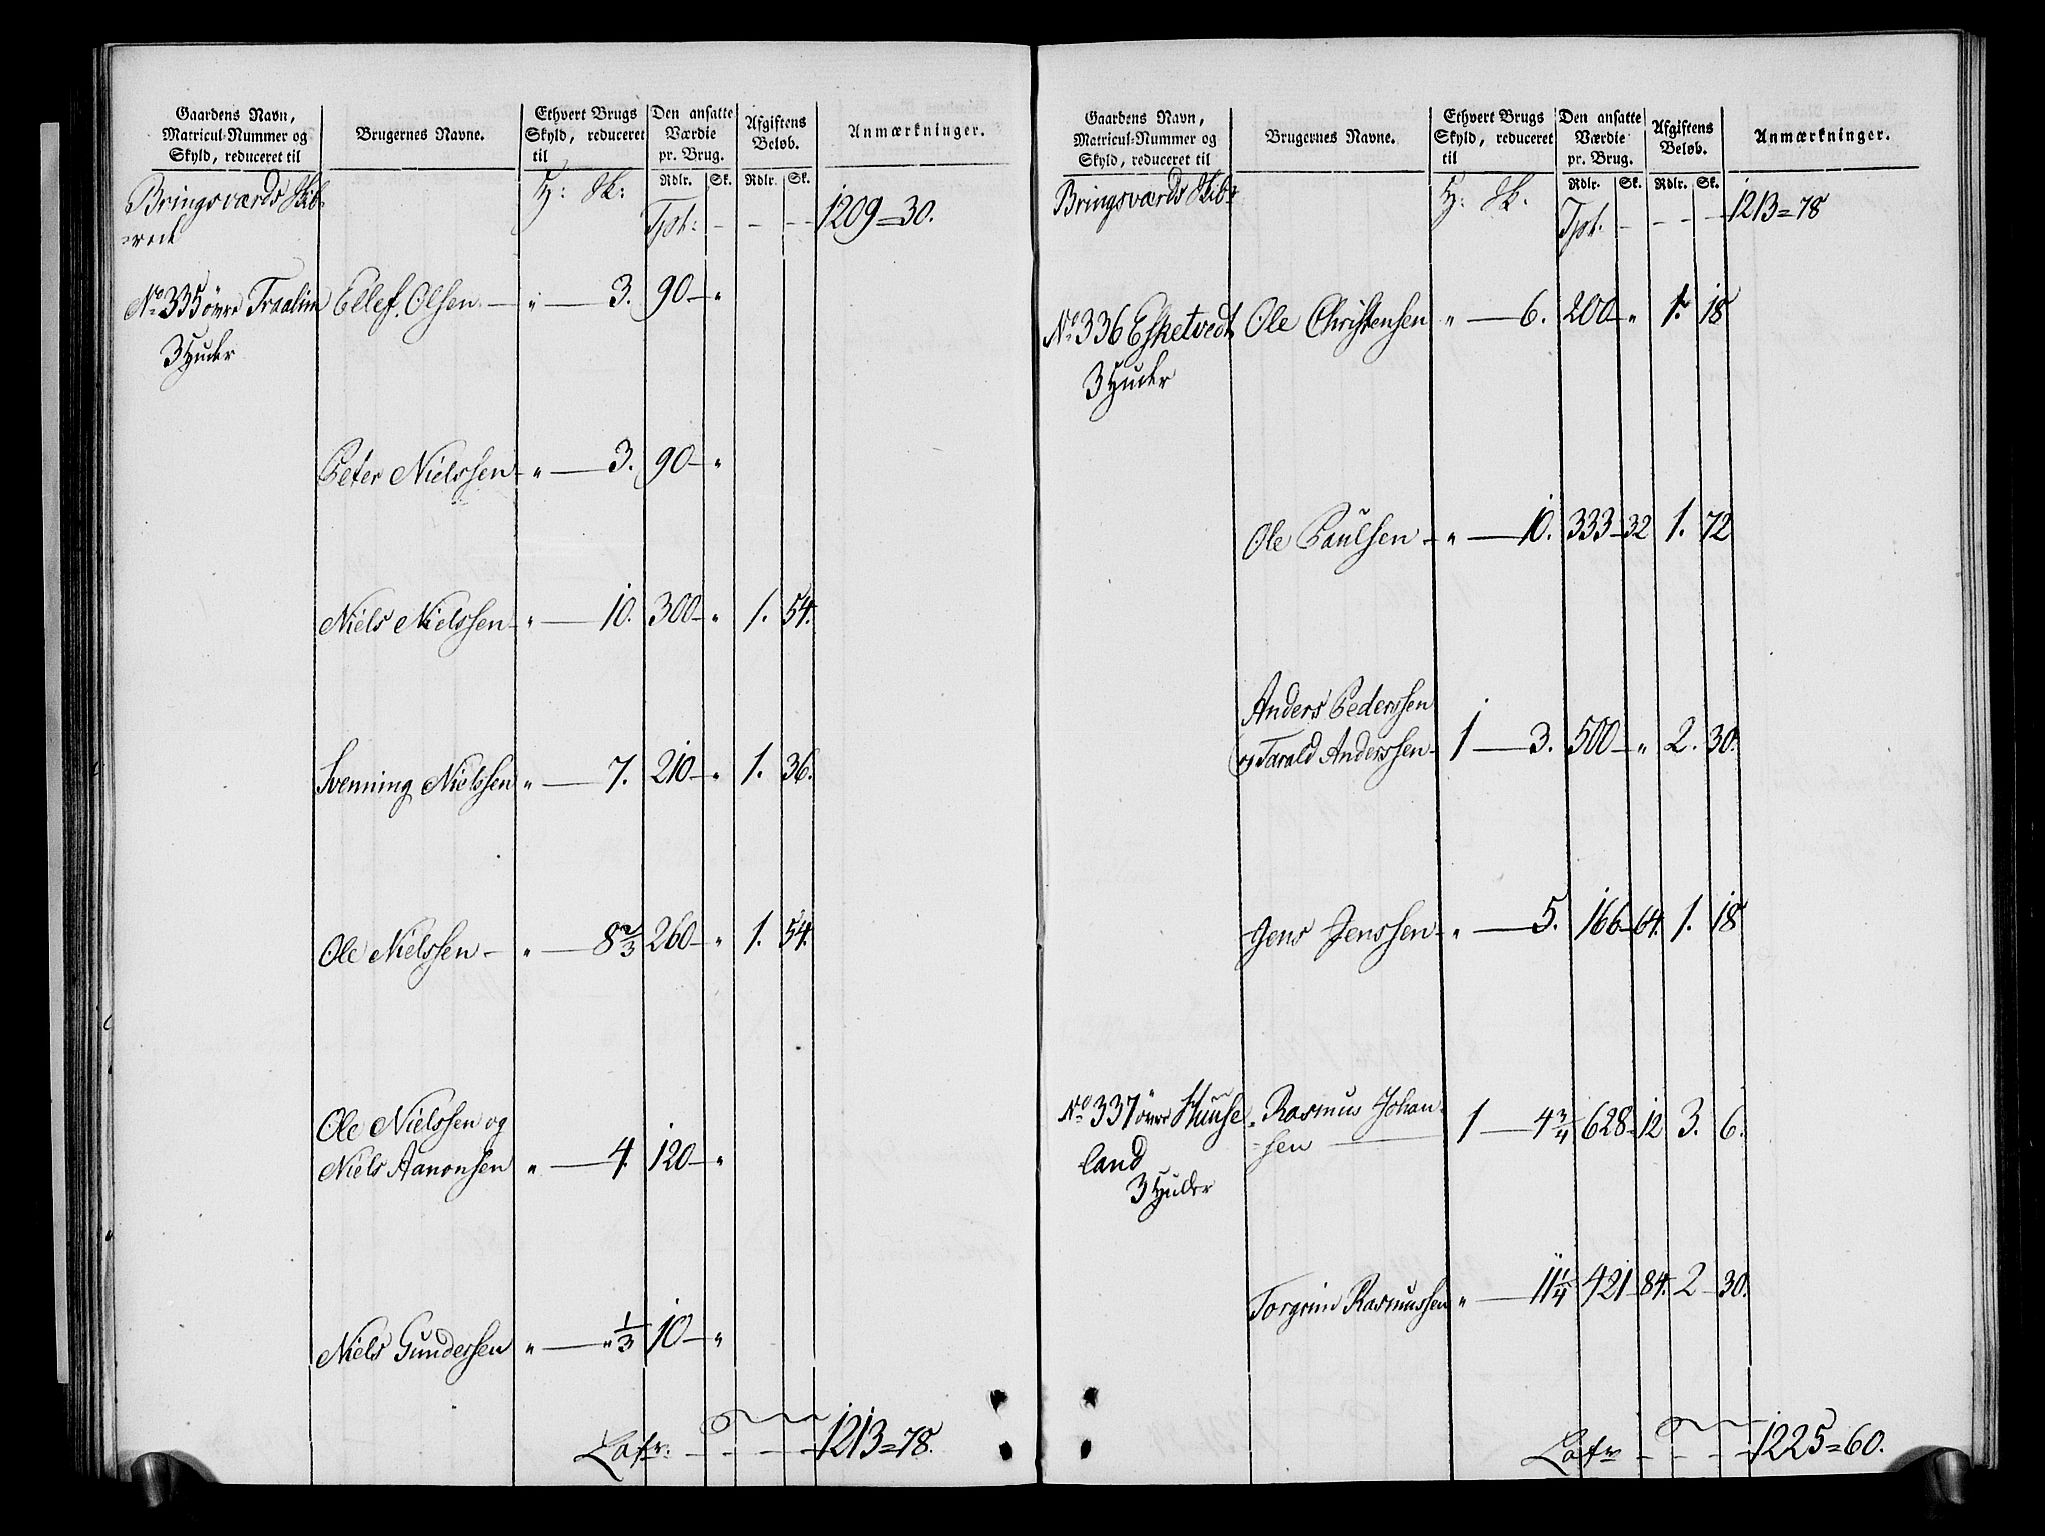 Gaardens Navn,
Matricul-Nummer og
Skyld, reduceret til
Brugernes Navne.
Ethvert Brugs
Skyld, reduceret
til
Den ansatte
Værdie
pr. Brug.
Afgiftens
Beløb.
Anmærkninger.
Rdlr. Sk. Rdlr. Sk.
Bringsværds Skib-
=rede
H: Sk:
Tpt: - - - - 1209=30.
No 335 øvre Traalim Ellef Olsen — „ — 3. 90 — „
3 Huder
Peter Nielssen — „ — 3. 90 — „
Niels Nielssen — „ — 10. 300 — „ 1. 54.
Svenning Nielssen „ — 7. 210 — „ 1. 36.
Ole Nielssen — „ — 8 2/3 260 — „ 1. 54.
Ole Nielssen og
Niels Aanonsen „ — 4. 120 — „
Niels Gundersen „ — „ 1/3 10 — „
Latr: - - - - 1213=78.
Gaardens Navn,
Matricul-Nummer og
Skyld, reduceret til
Brugernes Navne.
Ethvert Brugs
Skyld, reduceret
til
Den ansatte
Værdie
pr. Brug.
Afgiftens
Beløb.
Anmærkninger.
Rdlr. Sk. Rdlr. Sk.
Bringsværds Skib=
H: Sk.
Tpt. - - - - 1213=78
No 336 Esketvedt Ole Christensen „ — 6. 200 — „ 1. 18
3 Huder
Ole Paulsen — „ — 10. 333 — 32 1. 72
Anders Pederssen
og Tarald Anderssen — 1 — 3. 500 — „ 2. 30.
Jens Jenssen — „ — 5. 166 — 64. 1. 18
No 337 øvre Stuuse- Rasmus Johan- 1 — 4 3/4 628 — 12 3. 6.
land =sen
3 Huder
Torgrim Rasmussen „ — 11 1/4 421 — 84. 2 — 30.
Latr - - - 1225=60.